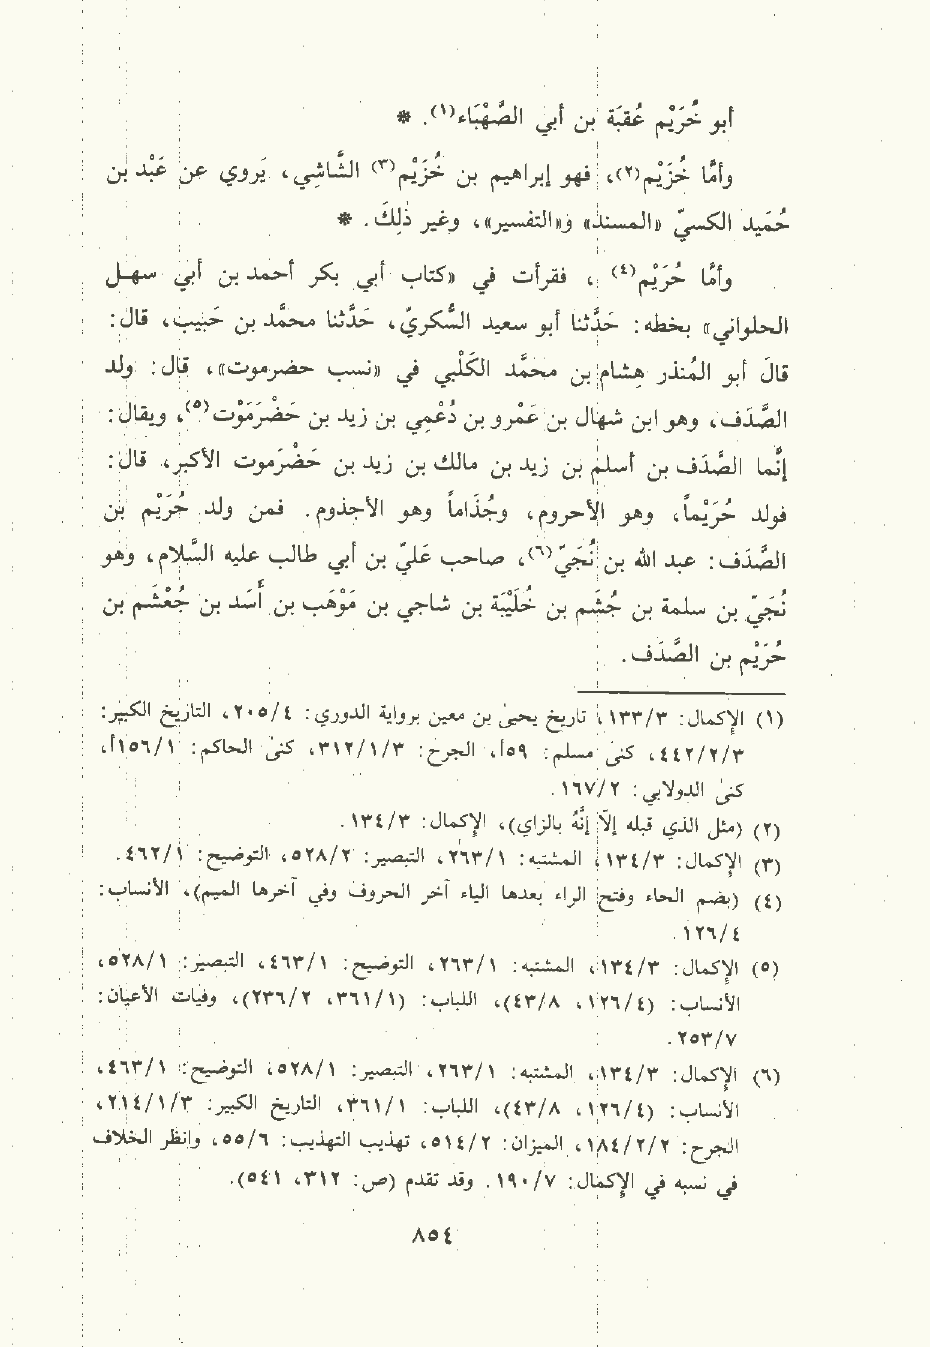 أبو خُرَيْم عُقبَة بن أبي الصَّهْبَاء(١). *
وأمَّا خُزَيْم(٢)، فهو إبراهيم بن خُزَيْم(٣) الشَّاشِي، يَروي عن عَبْد بن
حُمَيد الكسيّ «المسند» و«التفسير»، وغير ذلِكَ. *
وأمَّا حُرَيْم(٤)، فقرأت في «كتاب أبي بكر أحمد بن أبي سهل
الحلواني» بخطه: حَدَّثنا أبو سعيد السُّكريّ، حَدَّثنا محمَّد بن حَبيب، قال:
قالَ أبو المُنذر هِشام بن محمَّد الكَلْبي في «نسب حضرموت»، قال: ولد
الصَّدَف، وهو ابن شهال بن عَمْرو بن دُعْمِي بن زيد بن حَضْرَمَوْت(٥)، ويقال:
إنَّما الصَّدَف بن أسلم بن زيد بن مالك بن زيد بن حَضْرَموت الأكبر، قال:
فولد حُرَيْماً، وهو الأحروم، وجُذَاماً وهو الأجذوم. فمن ولد حُرَيْم بن
الصَّدَف: عبد الله بن نُجَيّ(٦)، صاحب عَليّ بن أبي طالب عليه السَّلام، وهو
نُجَيّ بن سلمة بن جُشَم بن خُلَيْبَة بن شاجي بن مَوْهَب بن أَسَد بن جُعْشَم بن
حُرَيْم بن الصَّدَف.
(١) الإكمال: ١٣٣/٣، تاريخ يحيىٰ بن معين برواية الدوري: ٢٠٥/٤، التاريخ الكبير:
٤٤٢/٢/٣، كنىٰ مسلم: ٥٩أ، الجرح: ٣١٢/١/٣، كنىٰ الحاكم: ١٥٦/١أ،
كنىٰ الدولابي: ١٦٧/٢.
(٢) (مثل الذي قبله إلاّ إنَّهُ بالزاي)، الإكمال: ١٣٤/٣.
(٣) الإكمال: ١٣٤/٣، المشتبه: ٢٦٣/١، التبصير: ٥٢٨/٢، التوضيح: ٤٦٢/١.
(٤) (بضم الحاء وفتح الراء بعدها الياء آخر الحروف وفي آخرها الميم)، الأنساب:
١٢٦/٤.
(٥) الإكمال: ١٣٤/٣، المشتبه: ٢٦٣/١، التوضيح: ٤٦٣/١، التبصير: ٥٢٨/١،
الأنساب: (١٢٦/٤، ٤٣/٨)، اللباب: (٣٦١/١، ٢٣٦/٢)، وفيات الأعيان:
٢٥٣/٧.
(٦) الإكمال: ١٣٤/٣، المشتبه: ٢٦٣/١، التبصير: ٥٢٨/١، التوضيح: ٤٦٣/١،
الأنساب: (١٢٦/٤، ٤٣/٨)، اللباب: ٣٦١/١، التاريخ الكبير: ٢١٤/١/٣،
الجرح: ١٨٤/٢/٢، الميزان: ٥١٤/٢، تهذيب التهذيب: ٥٥/٦، وانظر الخلاف
في نسبه في الإكمال: ١٩٠/٧. وقد تقدم (ص: ٣١٢، ٥٤١).
٨٥٤